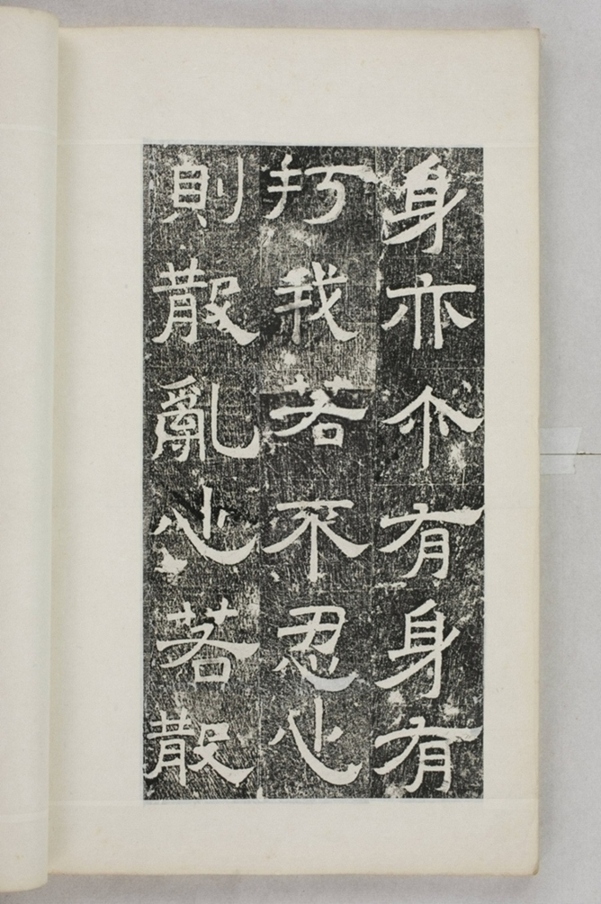 身亦尒有身有
打我若不忍心
則散亂心若散